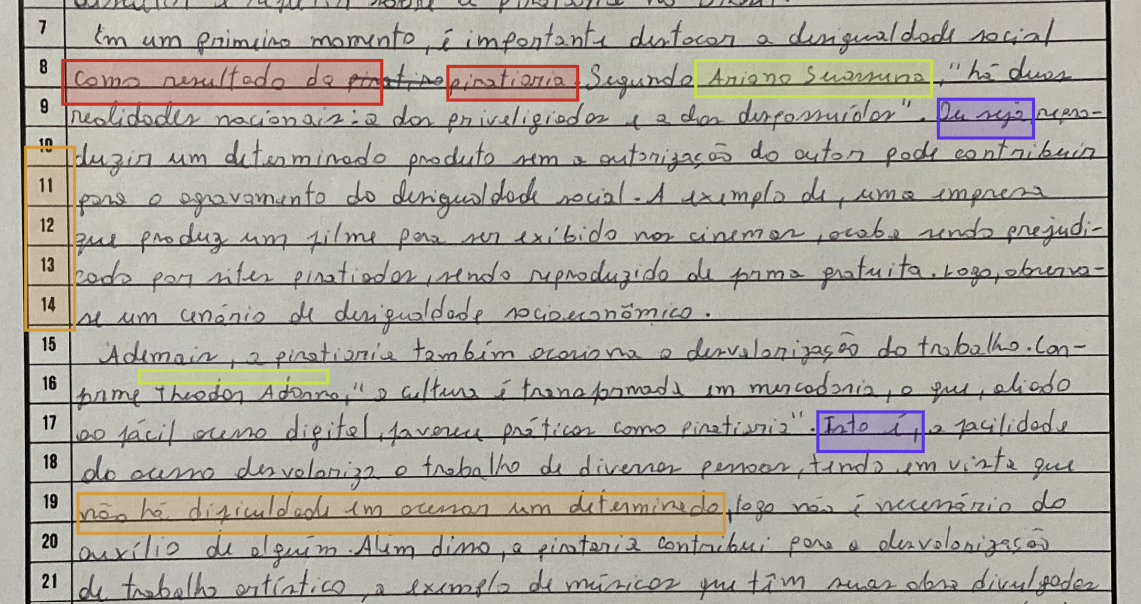 7 Em um primeiro momento, é importante destacar a desigualdade social
8 como resultado da piratiaria. Segundo Ariano Suassuna, "há duas
9 realidades nacionais: a dos priveligiados e a dos despossuídos". Ou seja repro-
10 duzir um determinado produto sem a autorização do autor pode contribuir
11 para o agravamento da desigualdade social. A exemplo de, uma empresa
12 que produz um filme para ser exibido nos cinemas, acaba sendo prejudi-
13 cada por sites piratiados, sendo reproduzido de forma gratuita. Logo, observa-
14 se um cenário de desigualdade socioeconômica.
15 Ademais, a piratiaria também ocasiona a desvalorização do trabalho. Con-
16 forme Theodor Adorno, "a cultura é transformada em mercadoria, o que, aliado
17 ao fácil acesso digital, favorece práticas como piratiaria". Isto é, a facilidade
18 do acesso desvaloriza o trabalho de diversas pessoas, tendo em vista que
19 não há dificuldade em acessar um determinado, logo não é necessário do
20 auxílio de alguém. Além disso, a pirataria contribui para a desvalorização
21 de trabalho artístico, a exemplo de músicos que têm suas obra divulgadas